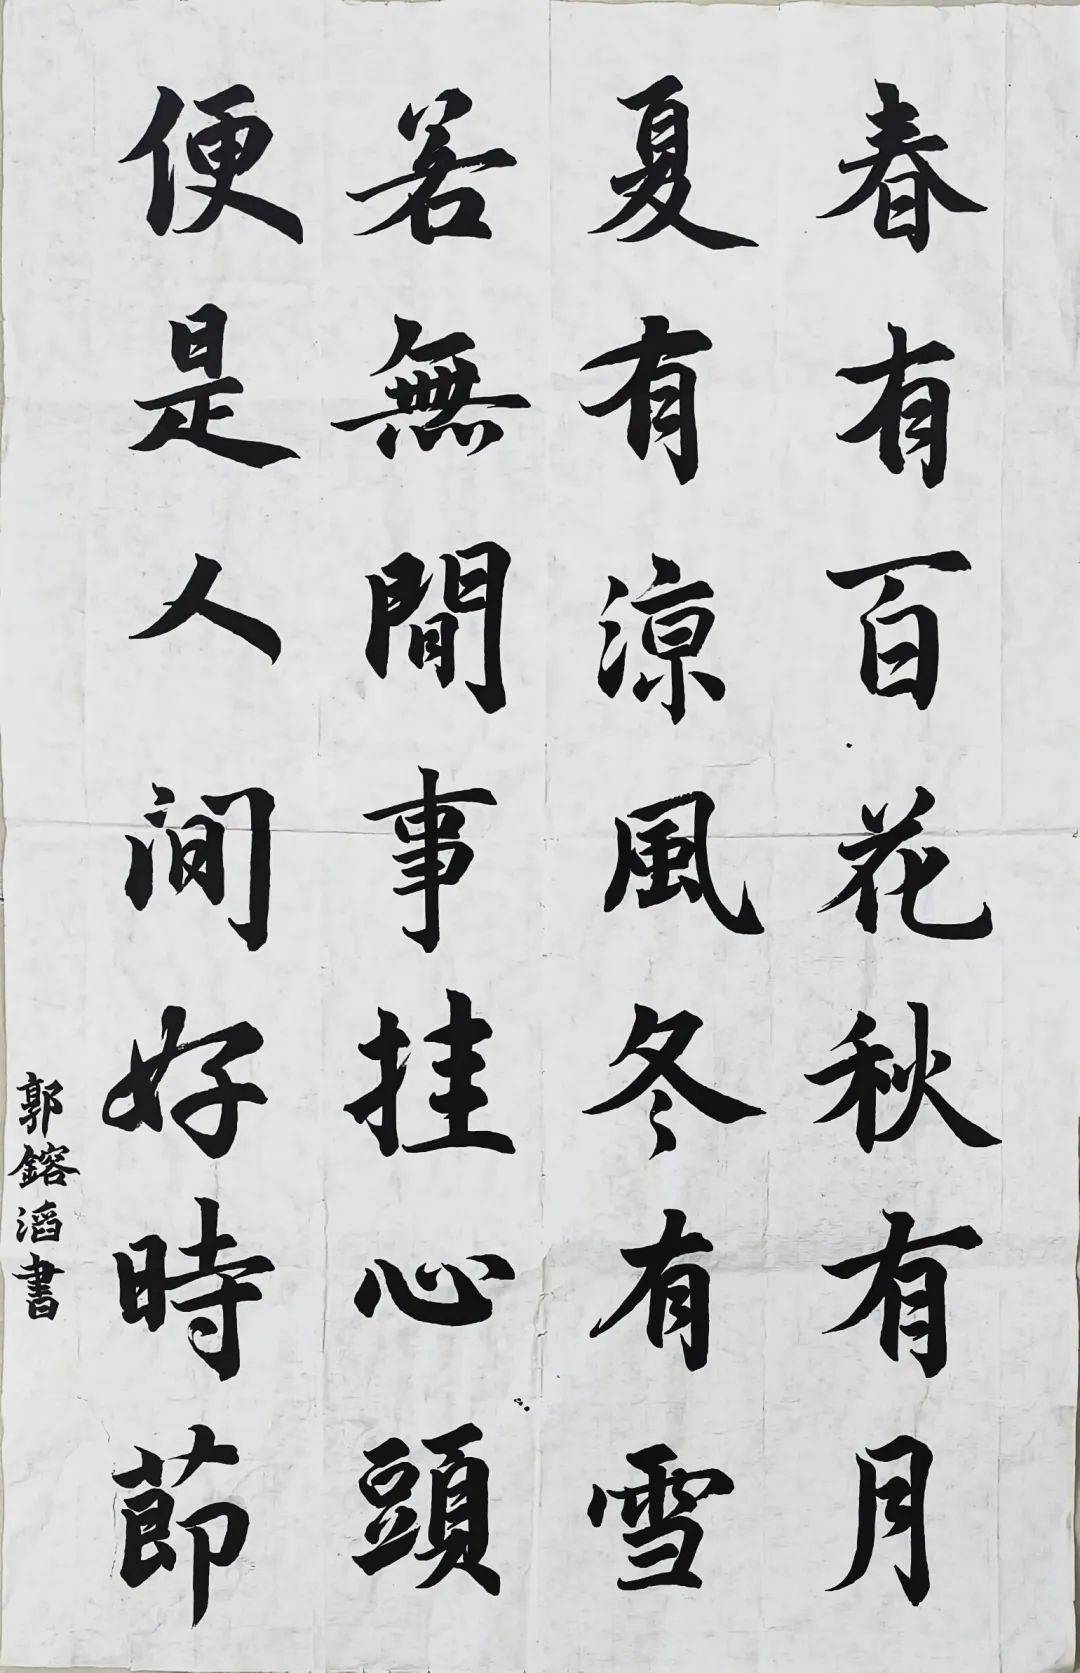 春有百花秋有月
夏有涼風冬有雪
若無閒事挂心頭
便是人間好時節
郭鎔滔書